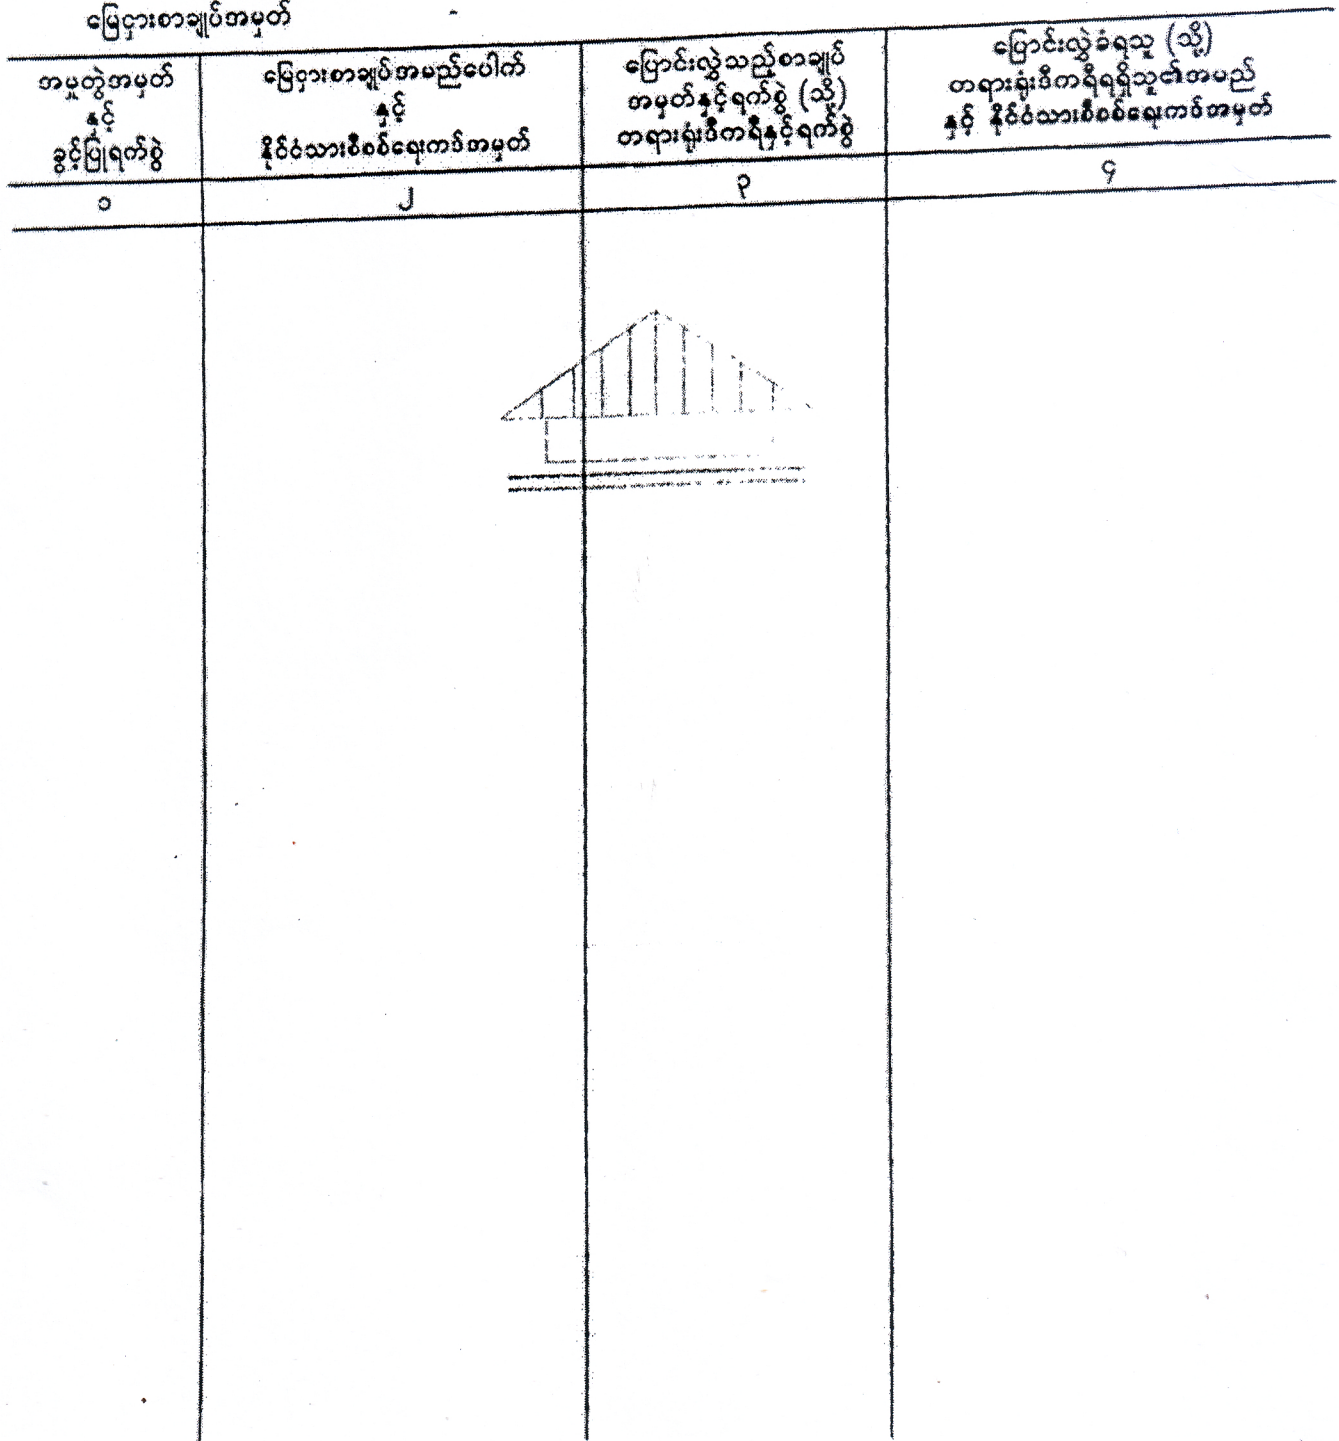 မြေငှားစာချုပ်အမှတ်
အမှုတွဲအမှတ်
နှင့်
ခွင့်ပြုရက်စွဲ
မြေငှားစာချုပ်အမည်ပေါက်
နှင့်
နိုင်ငံသားစိစစ်ရေးကဒ်အမှတ်
ပြောင်းလွှဲသည့်စာချုပ်
အမှတ်နှင့်ရက်စွဲ (သို့)
တရားရုံးဒီကရီနှင့်ရက်စွဲ
ပြောင်းလွှဲခံရသူ (သို့)
တရားရုံးဒီကရီရရှိသူ၏အမည်
နှင့် နိုင်ငံသားစိစစ်ရေးကဒ်အမှတ်
၁
၂
၃
၄